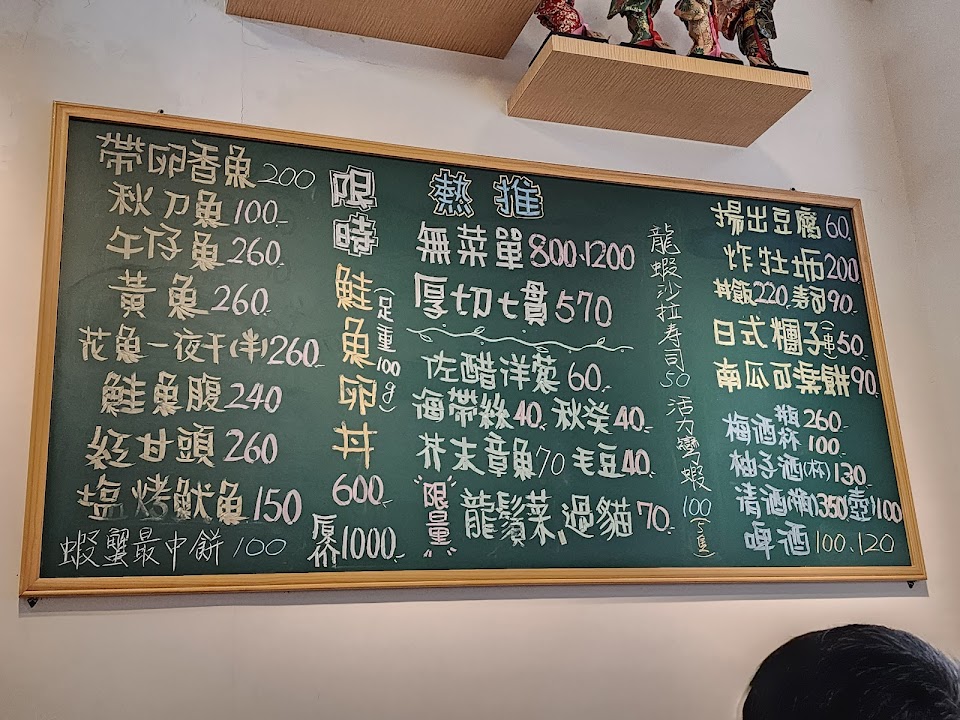 帶卵香魚200
秋刀魚100.
午仔魚260.
黃魚260.
花魚一夜干(半)260.
鮭魚腹240
紅甘頭260
塩烤魷魚150
蝦蟹最中餅100
限時
鮭魚卵丼
(足重100g)
600.
原价1000.
熱推
無菜單800、1200
厚切七貫570
佐醋洋蔥60.
海帶絲40.秋葵40.
芥末章魚70毛豆40.
限量
龍鬚菜、過貓70.
龍蝦沙拉寿司50
活力彎蝦100(隻)
揚出豆腐60.
炸牡蚵200
丼飯220.壽司90.
日式糰子(串)50.
南瓜可樂餅90.
梅酒瓶260
杯100
柚子酒(杯)130
清酒(瓶)350(壺)100
啤酒100、120